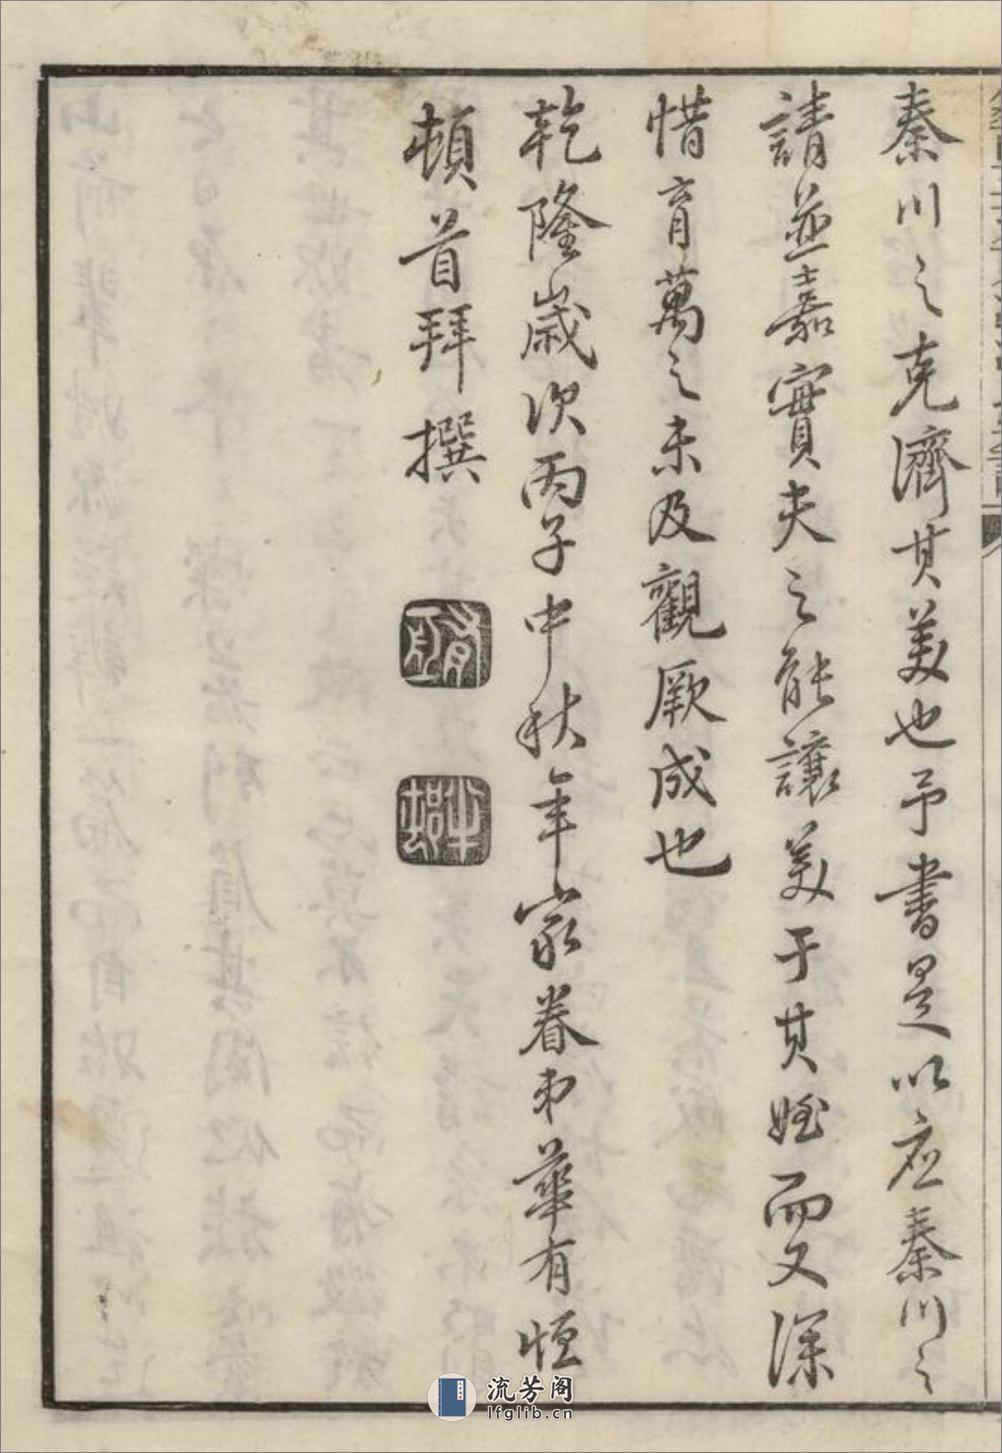 秦川之克濟其美也予書是以應秦川之
請並嘉實夫之能讓美于其姪而又深
惜育萬之未及觀厥成也
乾隆歲次丙子中秋年家眷弟華有恒
頓首拜撰
流芳阁
lfglib.cn